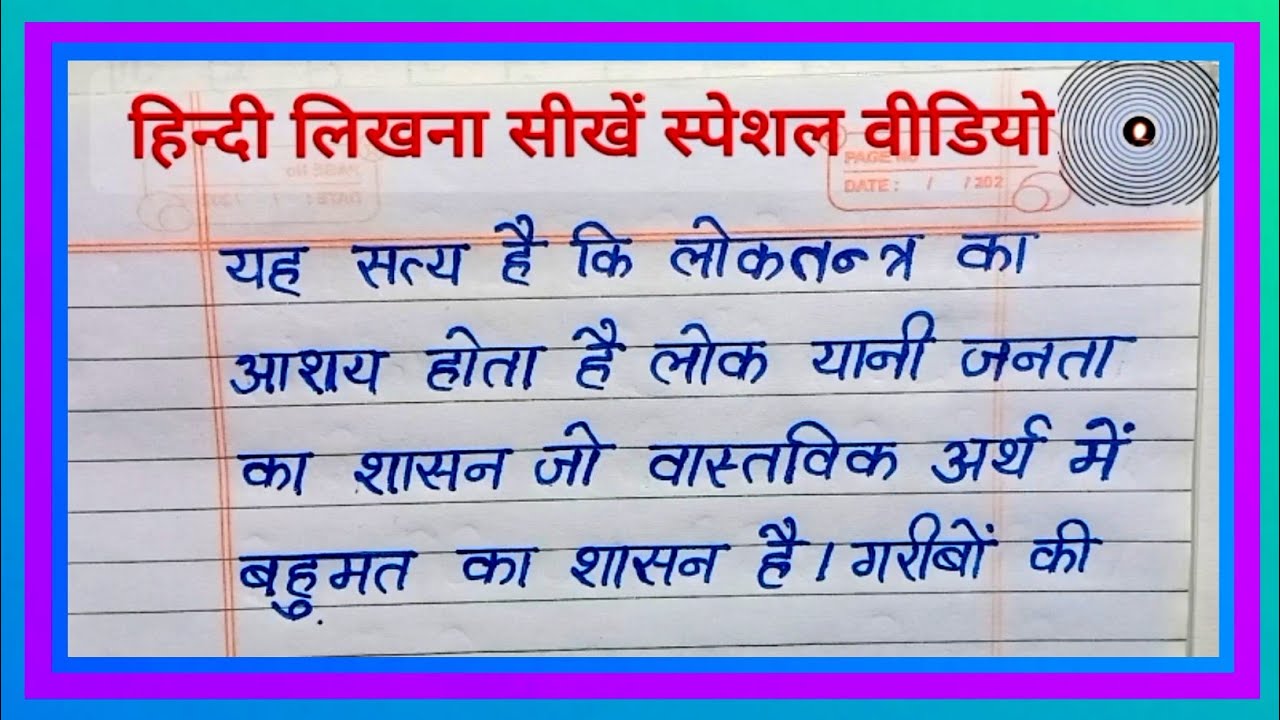 हिन्दी लिखना सीखें स्पेशल वीडियो
PAGE No
DATE: / /202
यह सत्य है कि लोकतन्त्र का
आशय होता है लोक यानी जनता
का शासन जो वास्तविक अर्थ में
बहुमत का शासन है। गरीबों की